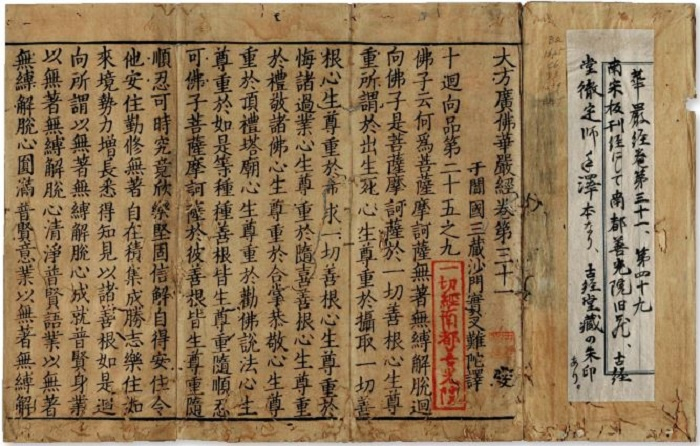 華嚴経巻第三十一、第四十九
南宋板刊経にして南都善光院旧蔵、古経
堂徹定師手澤本なり、古経堂蔵の朱印
あり。
大方廣佛華嚴經卷第三十一
于闐國三藏沙門實叉難陀譯
一切經南都善光院
十迴向品第二十五之九
佛子云何爲菩薩摩訶薩無著無縛解脫迴
向佛子是菩薩摩訶薩於一切善根心生尊
重所謂於出生死心生尊重於攝取一切善
根心生尊重於希求一切善根心生尊重於
悔諸過業心生尊重於隨喜善根心生尊重
於禮敬諸佛心生尊重於合掌恭敬心生尊
重於頂禮塔廟心生尊重於勸佛說法心生
尊重於如是等種種善根皆生尊重隨順忍
可佛子菩薩摩訶薩於彼善根皆生尊重隨
順忍可時究竟欣樂堅固信解自得安住令
他安住勤修無著自在積集成勝志樂住如
來境勢力增長悉得知見以諸善根如是迴
向所謂以無著無縛解脫心成就普賢身業
以無著無縛解脫心清淨普賢語業以無著
無縛解脫心圓滿普賢意業以無著無縛解